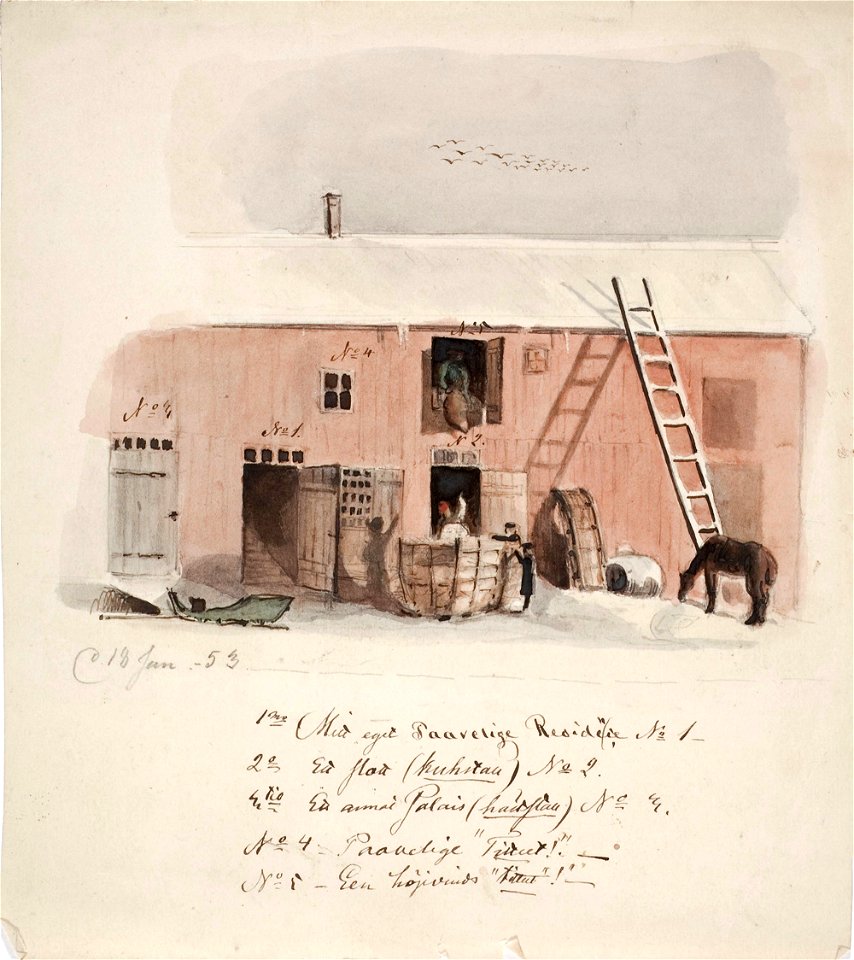 No 5
No 4
No 3
No 1.
N 2.
d. 18 Jan. -53
1mo Mitt eget Paavelige Reside No 1-
2o Ett slott (kuhstau) No 2.
3tio Ett annat Palais (hässtau) No 3.
No 4 - Paavelige "Tittut!"-
No 5 - Een höjvinds "tittut"!"-